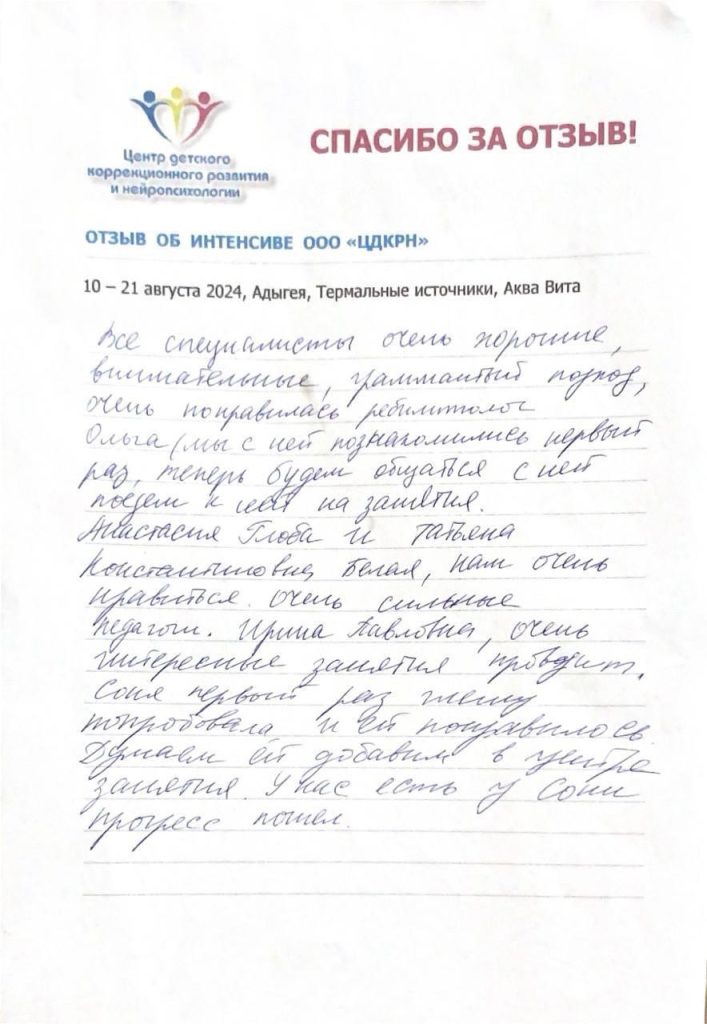 Центр детского
коррекционного развития
и нейропсихологии
СПАСИБО ЗА ОТЗЫВ!
ОТЗЫВ ОБ ИНТЕНСИВЕ ООО «ЦДКРН»
10 – 21 августа 2024, Адыгея, Термальные источники, Аква Вита
Все специалисты очень хорошие,
внимательные, граммантый подход,
очень понравилась
Ольга (мы с ней познакомились первый
раз, теперь будем общаться с ней
поедем к ней на занятия.
Анастасия Глоба и Татьяна
Константиновна Белая, нам очень
нравиться. Очень сильные
педагоги. Ирина Павловна, очень
интересные занятия проводит.
Соня первый раз
попробовала и ей понравилось.
Думаем ей добавим в центре
занятия. У нас есть у Сони
прогресс пошел.